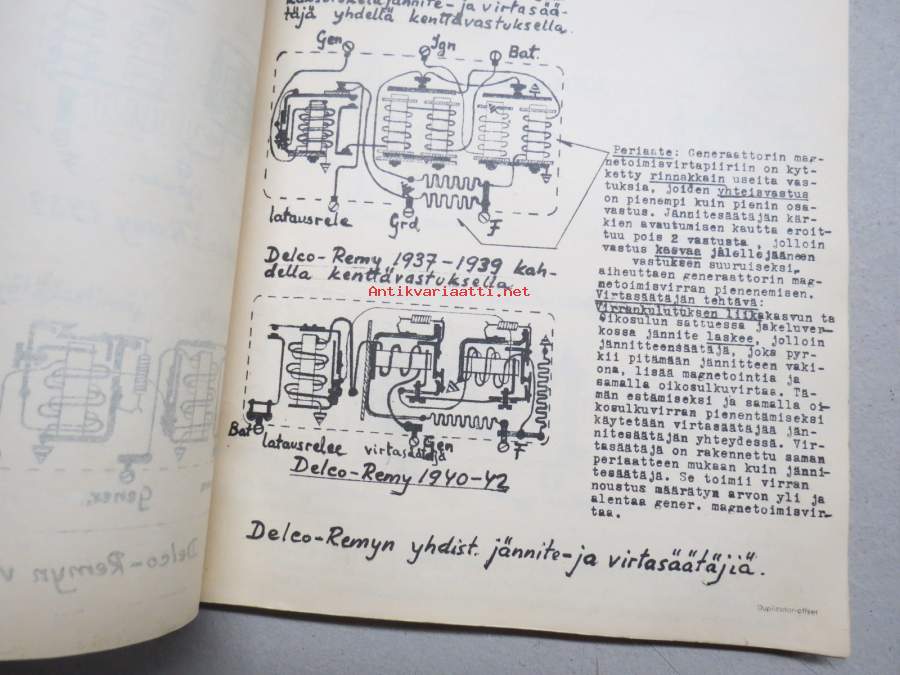 jännite- ja virtasää-
täjä yhdellä kenttävastuksella.
Gen
Ign
Bat.
latausrele
Grd.
F
Delco-Remy 1937-1939 kah-
della kenttävastuksella
Antikvariaatti.net
Bat
latausrelee
virtasäätäjä
Gen
F
Delco-Remy 1940-42
Periaate: Generaattorin mag-
netoimisvirtapiiriin on kyt-
ketty rinnakkain useita vas-
tuksia, joiden yhteisvastus
on pienempi kuin pienin osa-
vastus. Jännitesäätäjän kär-
kien avautumisen kautta eroit-
tuu pois 2 vastusta, jolloin
vastus kasvaa jälellejääneen
vastuksen suuruiseksi,
aiheuttaen generaattorin mag-
netoimisvirran pienenemisen.
Virtasäätäjän tehtävä:
Virrankulutuksen liikakasvun ta
oikosulun sattuessa jakeluver-
kossa jännite laskee, jolloin
jännitteensäätäjä, joka pyr-
kii pitämään jännitteen vaki-
ona, lisää magnetointia ja
samalla oikosulkuvirtaa. Tä-
män estämiseksi ja samalla oi-
kosulkuvirran pienentämiseksi
käytetään virtasäätäjää jän-
nitesäätäjän yhteydessä. Vir-
tasäätäjä on rakennettu saman
periaatteen mukaan kuin jänni-
tesäätäjä. Se toimii virran
noustus määrätyn arvon yli ja
alentaa gener. magnetoimisvir-
taa.
Delco-Remyn yhdist. jännite- ja virtasäätäjiä.
Duplicator-offset
Gener.
Delco-Remyn v